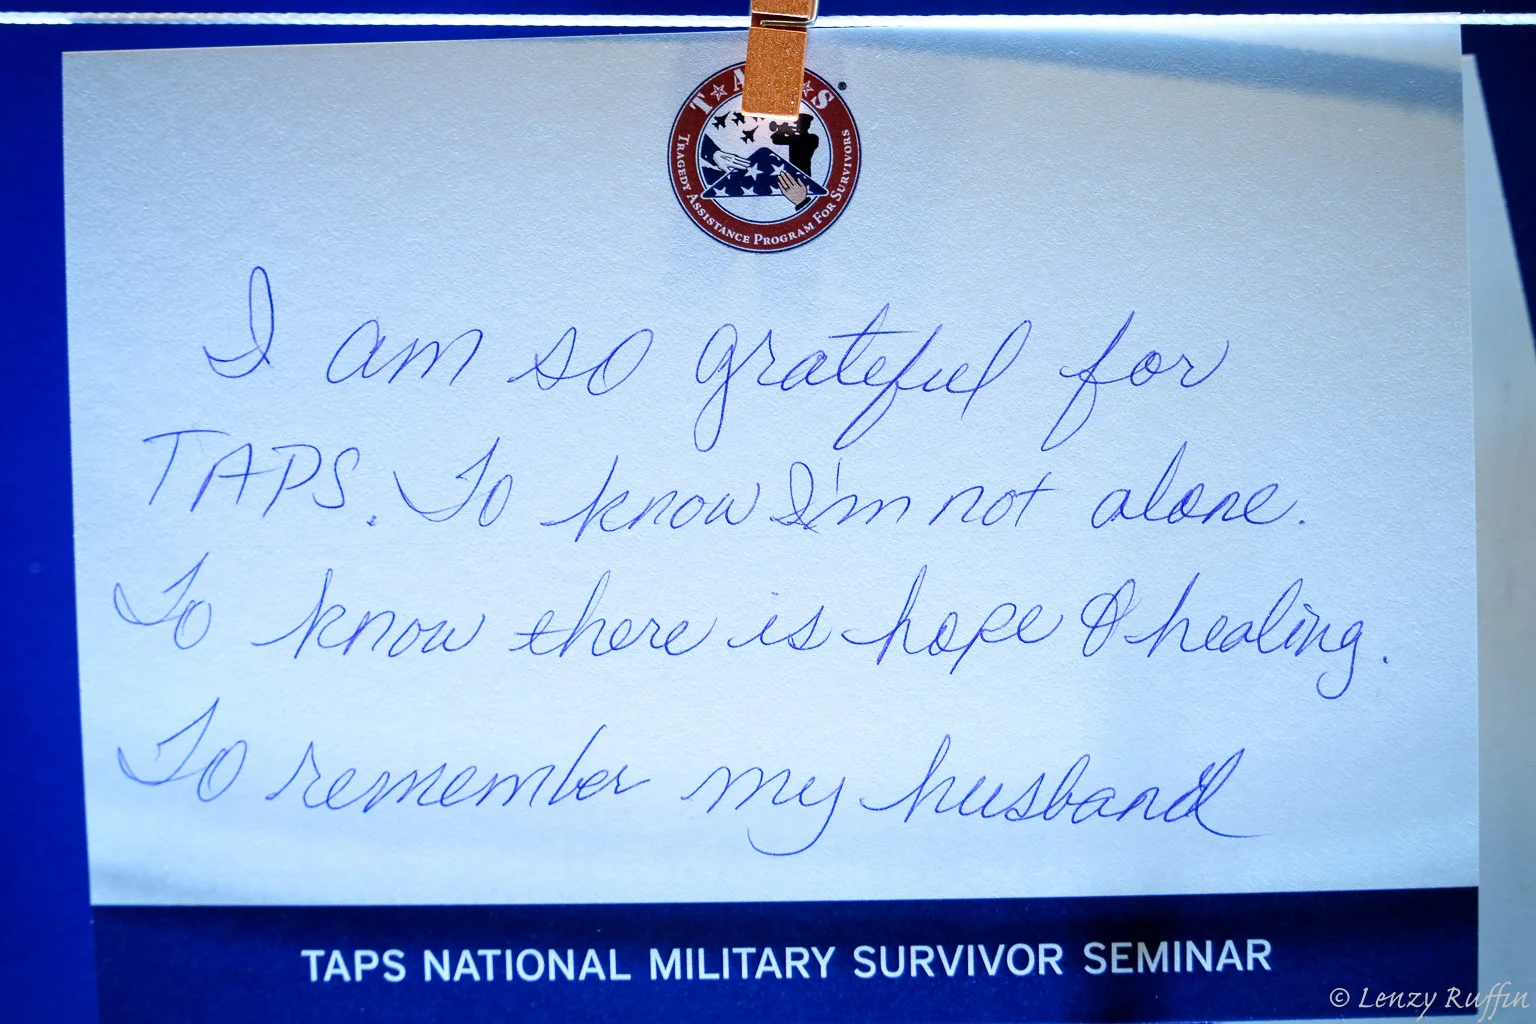 TAPS
TRAGEDY ASSISTANCE PROGRAM FOR SURVIVORS
I am so grateful for
TAPS. To know I'm not alone.
To know there is hope & healing.
To remember my husband
TAPS NATIONAL MILITARY SURVIVOR SEMINAR
© Lenzy Ruffin